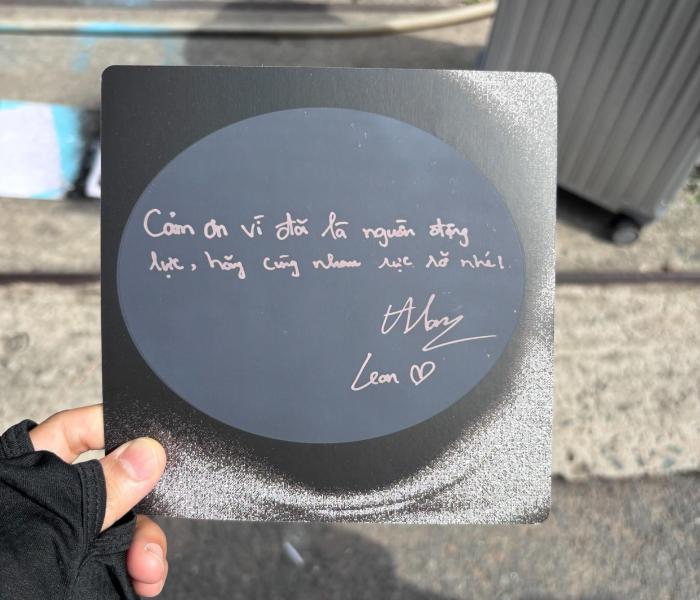 Cảm ơn vì đã là nguồn động
lực, hãy cùng nhau rực rỡ nhé!
Leon ♡